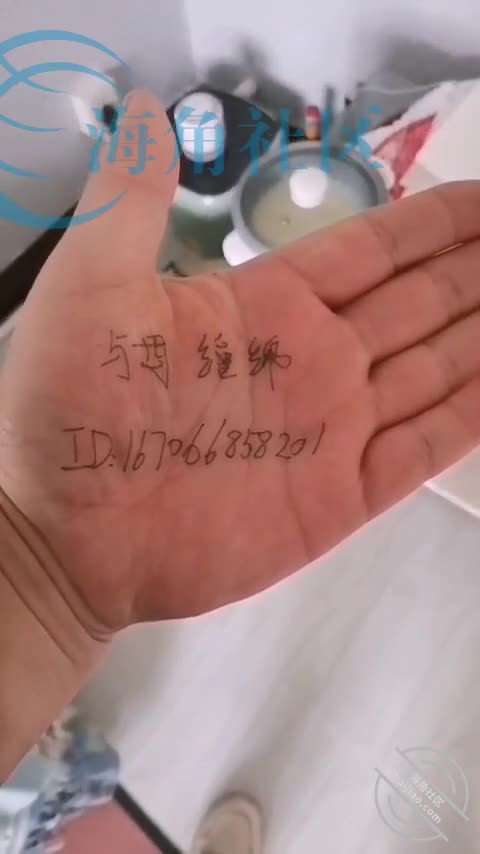 海角社区
与母缠绵
ID:167066858201
海角社区
haijiao.com